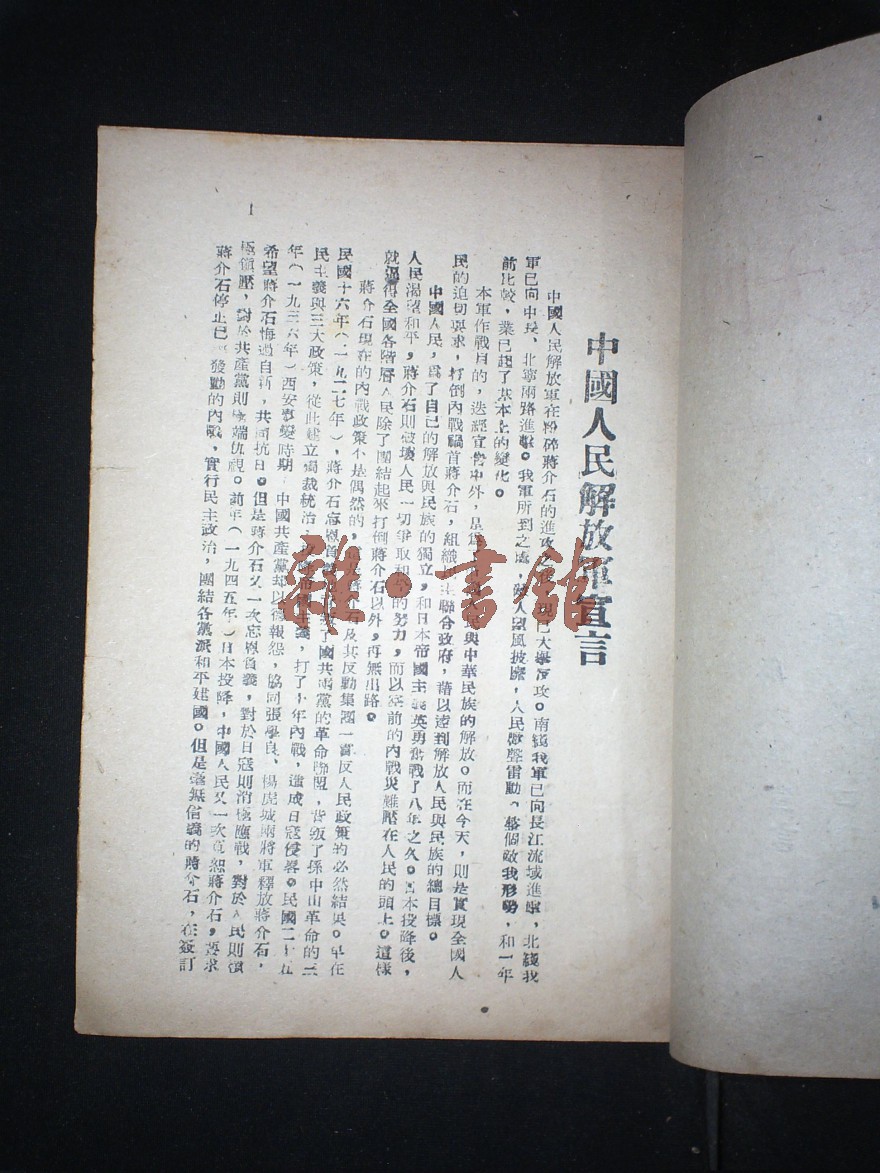 中國人民解放軍宣言
中國人民解放軍在粉碎蔣介石的進攻之後，現已大舉反攻。南綫我軍已向長江流域進擊，北綫我
軍已向中長、北寧兩路進擊。我軍所到之處，敵人望風披靡，人民歡聲雷動。整個敵我形勢，和一年
前比較，業已起了基本上的變化。
本軍作戰目的，迭經宣告中外，是爲了中國人民與中華民族的解放。而在今天，則是實現全國人
民的迫切要求，打倒內戰禍首蔣介石，組織民主聯合政府，藉以達到解放人民與民族的總目標。
中國人民，爲了自己的解放與民族的獨立，和日本帝國主義英勇奮戰了八年之久。日本投降後，
人民渴望和平，蔣介石則破壞人民一切爭取和平的努力，而以空前的內戰災難壓在人民的頭上。這樣
就逼得全國各階層人民除了團結起來打倒蔣介石以外，再無出路。
蔣介石現在的內戰政策不是偶然的，這是蔣介石及其反動集團一貫反人民政策的必然結果。早在
民國十六年（一九二七年），蔣介石忘恩負義 了國共兩黨的革命聯盟，背叛了孫中山革命的三
民主義與三大政策，從此建立獨裁統治，投降帝國主義，打了十年內戰，造成日寇侵畧。民國二十五
年（一九三六年）西安事變時期 中國共產黨却以德報怨，協同張學良、楊虎城兩將軍釋放蔣介石，
希望蔣介石悔過自新，共同抗日。但是蔣介石又一次忘恩負義，對於日寇則消極應戰，對於人民則積
極鎭壓，對於共產黨則極端仇視。前年（一九四五年）日本投降，中國人民又一次寬恕蔣介石，要求
蔣介石停止已 發動的內戰，實行民主政治，團結各黨派和平建國。但是毫無信義的蔣介石，在簽訂
1
雜·書館